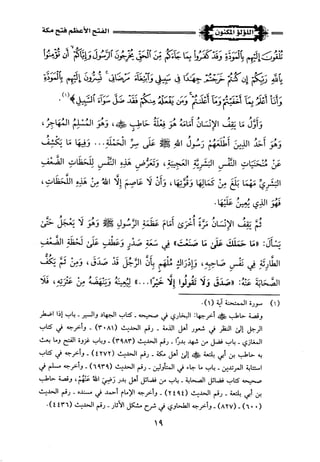 الفتح الأعظم فتح مكة
اللؤلؤ المكنون
تُلْقُونَ إِلَيْهِم بِالْمَوَدَّةِ وَقَدْ كَفَرُوا بِمَا جَاءَكُم مِّنَ الْحَقِّ يُخْرِجُونَ الرَّسُولَ وَإِيَّاكُمْ أَن تُؤْمِنُوا
بِاللَّهِ رَبِّكُمْ إِن كُنتُمْ خَرَجْتُمْ جِهَادًا فِي سَبِيلِي وَابْتِغَاءَ مَرْضَاتِي تُسِرُّونَ إِلَيْهِم بِالْمَوَدَّةِ
وَأَنَا أَعْلَمُ بِمَا أَخْفَيْتُمْ وَمَا أَعْلَنتُمْ وَمَن يَفْعَلْهُ مِنكُمْ فَقَدْ ضَلَّ سَوَاءَ السَّبِيلِ﴾(١).
وَأَوَّلُ مَا يَقِفُ الْإِنْسَانُ أَمَامَهُ هُوَ فِعْلَةُ حَاطِبٍ ﷺ، وَهُوَ الْمُسْلِمُ الْمُهَاجِرُ،
وَهُوَ أَحَدُ الَّذِينَ أَطْلَعَهُمْ رَسُولُ اللهِ ﷺ عَلَى سِرِّ الْحَمْلَةِ... وَفِيهَا مَا يَكْشِفُ
عَنْ مُنْحَنَيَاتِ النَّفْسِ الْبَشَرِيَّةِ الْعَجِيبَةِ، وَتَعَرُّضِ هَذِهِ النَّفْسِ لِلَحَظَاتِ الضَّعْفِ
الْبَشَرِيِّ مَهْمَا بَلَغَ مِنْ كَمَالِهَا وَقُوَّتِهَا، وَأَنْ لَا عَاصِمَ إِلَّا اللهُ مِنْ هَذِهِ اللَّحَظَاتِ،
فَهُوَ الَّذِي يُعِينُ عَلَيْهَا.
ثُمَّ يَقِفُ الْإِنْسَانُ مَرَّةً أُخْرَى أَمَامَ عَظَمَةِ الرَّسُولِ ﷺ وَهُوَ لَا يَعْجَلُ حَتَّى
يَسْأَلَ: «مَا حَمَلَكَ عَلَى مَا صَنَعْتَ» فِي سَعَةِ صَدْرٍ وَعَطْفٍ عَلَى لَحْظَةِ الضَّعْفِ
الطَّارِئَةِ فِي نَفْسِ صَاحِبِهِ، وَإِدْرَاكٍ مُلْهَمٍ بِأَنَّ الرَّجُلَ قَدْ صَدَقَ، وَمِنْ ثَمَّ يَكُفُّ
الصَّحَابَةَ عَنْهُ: «صَدَقَ وَلَا تَقُولُوا إِلَّا خَيْرًا...» لِيُعِينَهُ وَيُنْهِضَهُ مِنْ عَثْرَتِهِ، فَلَا
(١) سورة الممتحنة آية (١).
وقصة حاطب ﷺ أخرجها: البخاري في صحيحه ـ كتاب الجهاد والسير ـ باب إذا اضطر
الرجل إلى النظر في شعور أهل الذمة ـ رقم الحديث (٣٠٨١) ـ وأخرجه في كتاب
المغازي ـ باب فضل من شهد بدرًا ـ رقم الحديث (٣٩٨٣) ـ وباب غزوة الفتح وما بعث
به حاطب بن أبي بلتعة ﷺ إلى أهل مكة ـ رقم الحديث (٤٢٧٢) ـ وأخرجه في كتاب
استتابة المرتدين ـ باب ما جاء في المتأولين ـ رقم الحديث (٦٩٣٩) ـ وأخرجه مسلم في
صحيحه كتاب فضائل الصحابة ـ باب من فضائل أهل بدر رضي الله عنهم، وقصة حاطب
بن أبي بلتعة ـ رقم الحديث (٢٤٩٤) ـ وأخرجه الإمام أحمد في مسنده ـ رقم الحديث
(٦٠٠) ـ (٨٢٧) ـ وأخرجه الطحاوي في شرح مشكل الآثار ـ رقم الحديث (٤٤٣٦).
١٩